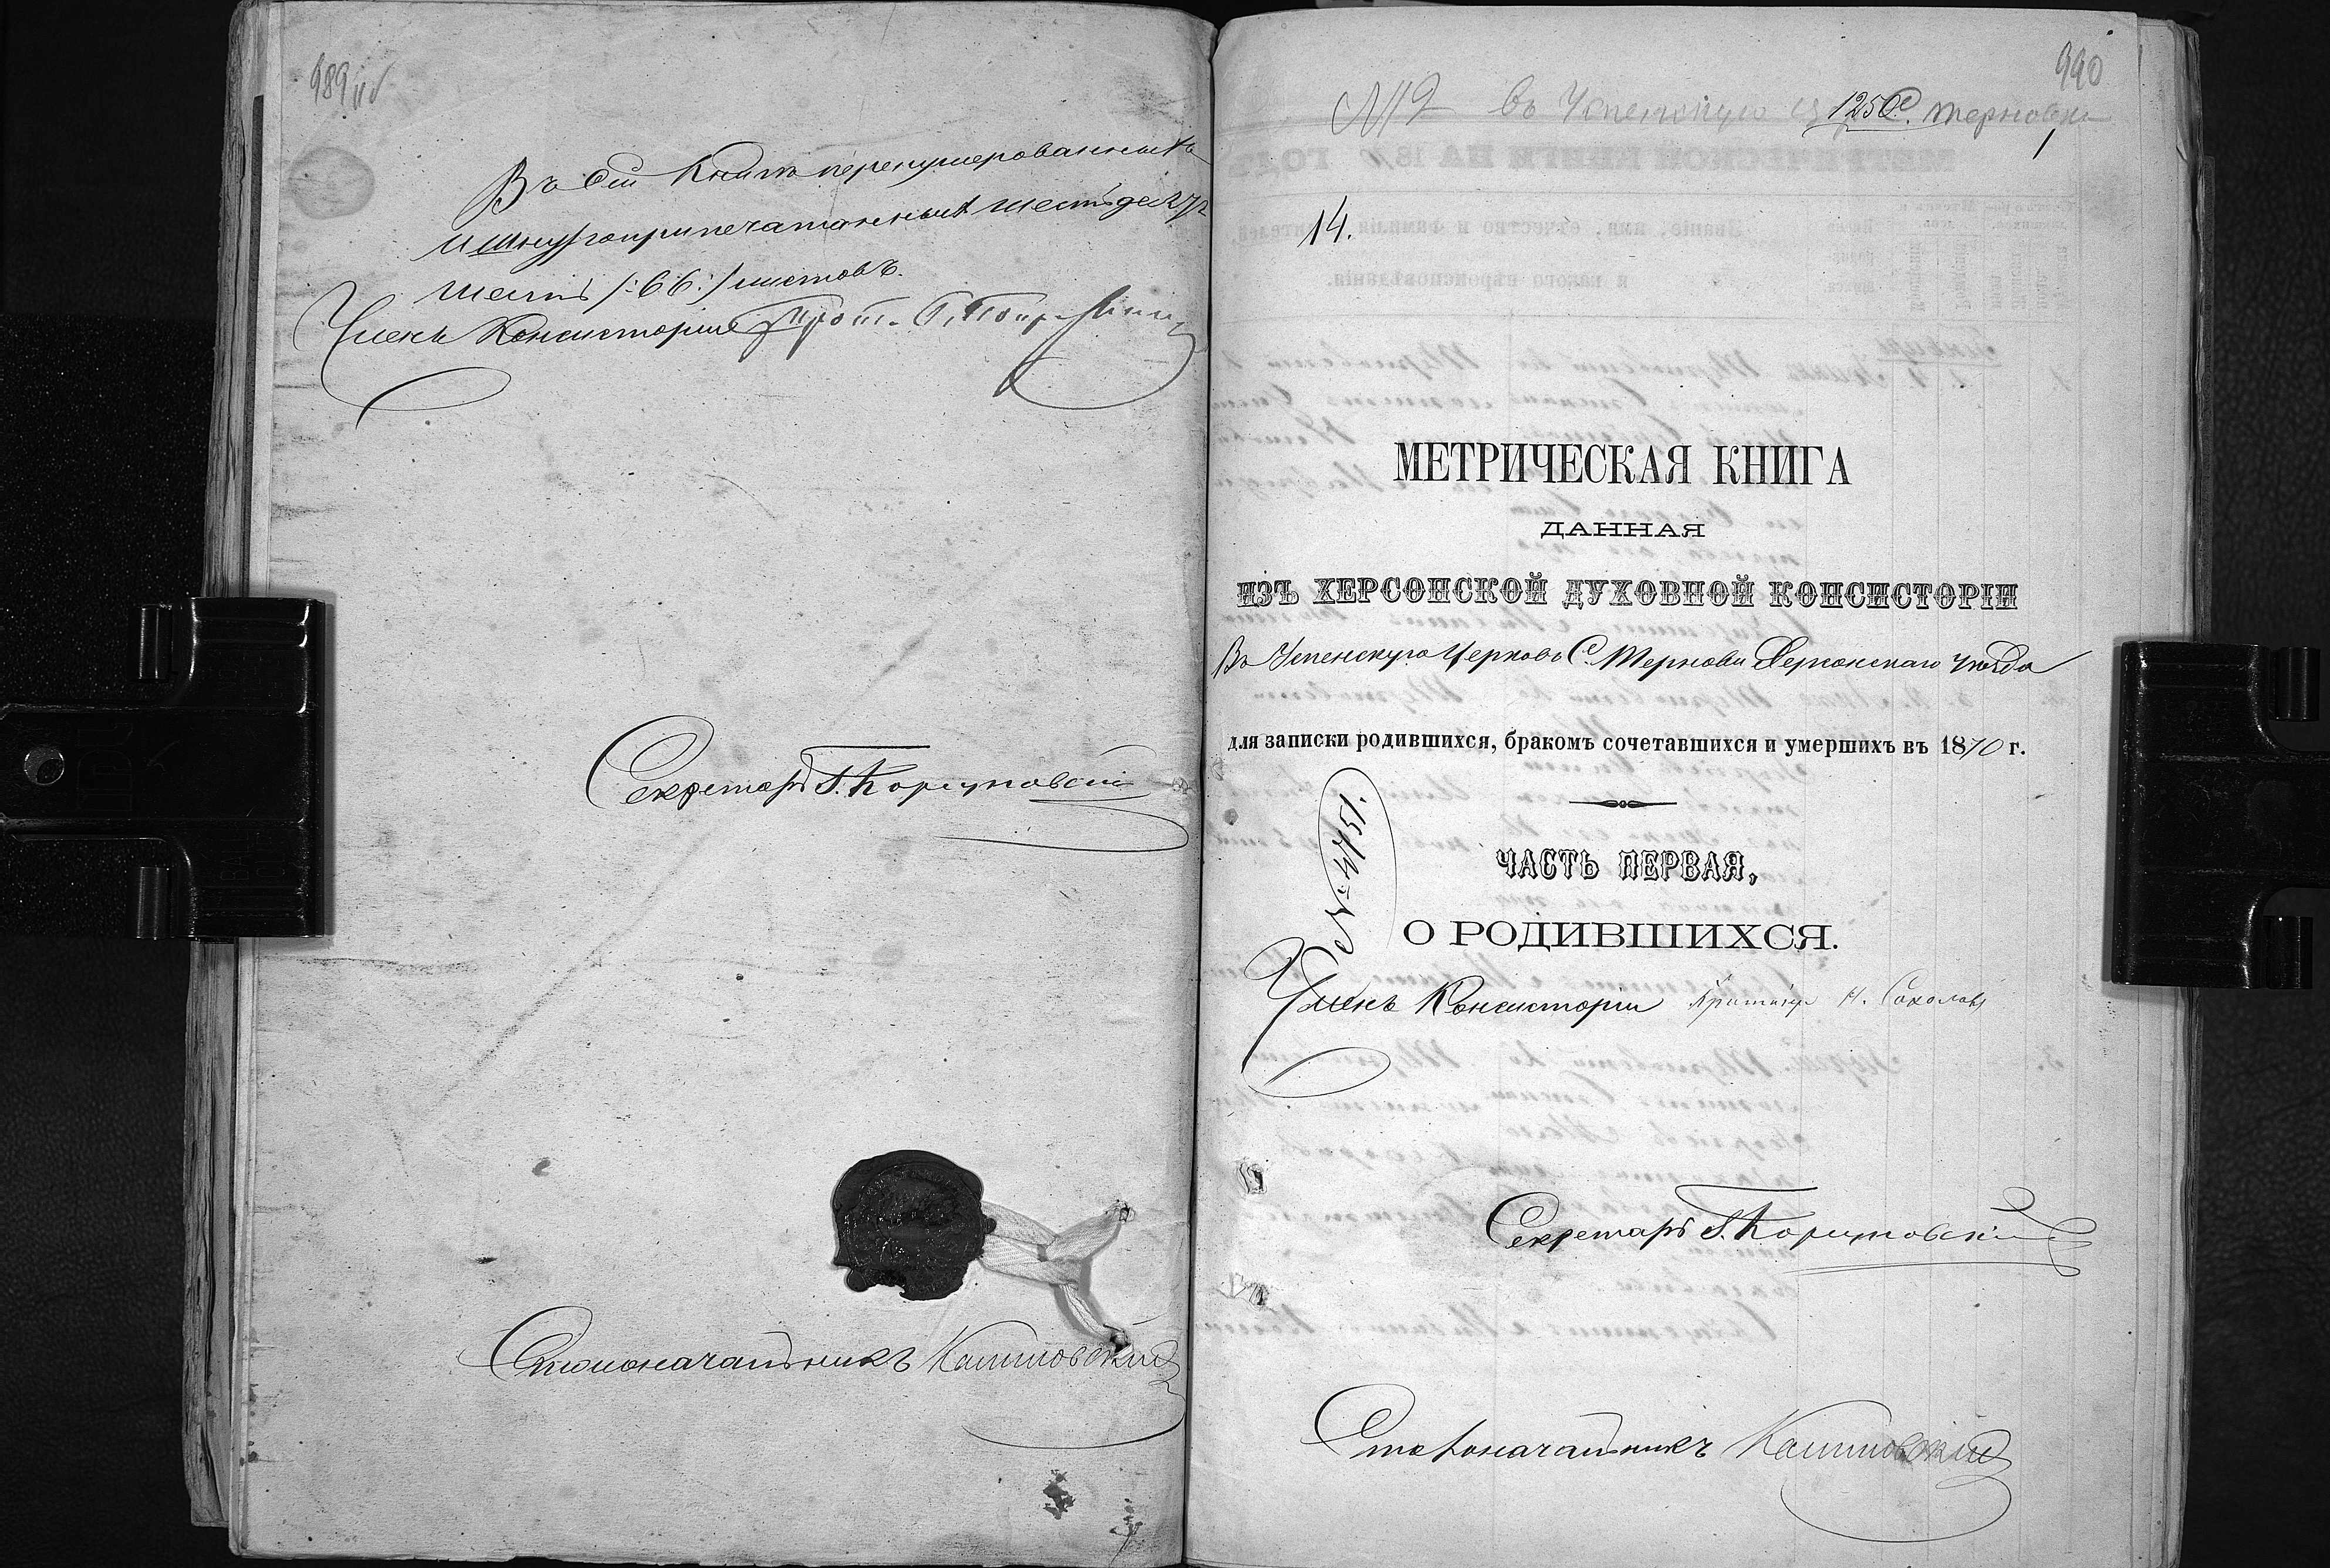 989 об
Въ сей Книгѣ перенумерованныхъ
и шнуроприпечатанныхъ шестьдесятъ
шесть /:66:/ листовъ.
Членъ Консисторіи Прот.
Секретарь Г.
Столоначальникъ
990
№ 9 въ Успенскую 1250 с. Терновки
1
14.
МЕТРИЧЕСКАЯ КНИГА
ДАННАЯ
ИЗЪ ХЕРСОНСКОЙ ДУХОВНОЙ КОНСИСТОРІИ
Въ Успенскую Церковь С. Терновки Херсонскаго уѣзда
для записки родившихся, бракомъ сочетавшихся и умершихъ въ 1870 г.
№ 4751.
ЧАСТЬ ПЕРВАЯ,
О РОДИВШИХСЯ.
Членъ Консисторіи Протоіерей Н. Соколовъ
Секретарь Г.
Столоначальникъ